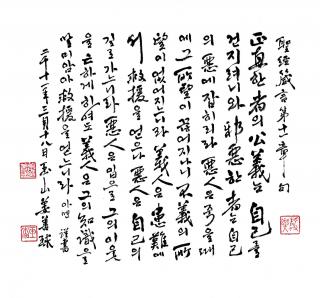 聖經箴言第十一章句
正直한 者의 公義는 自己를
건지려니와 邪惡한 者는 自己
의 惡에 잡히리라 惡人은 죽을 때
에 그 所望이 끊어지나니 不義의 所
望이 없어지느니라 義人은 患難에
서 救援을 얻으나 惡人은 自己의
길로 가느니라 惡人은 입으로 그의 이웃
을 亡하게 하여도 義人은 그의 知識을
말미암아 救援을 얻느니라 아멘
三月十八日